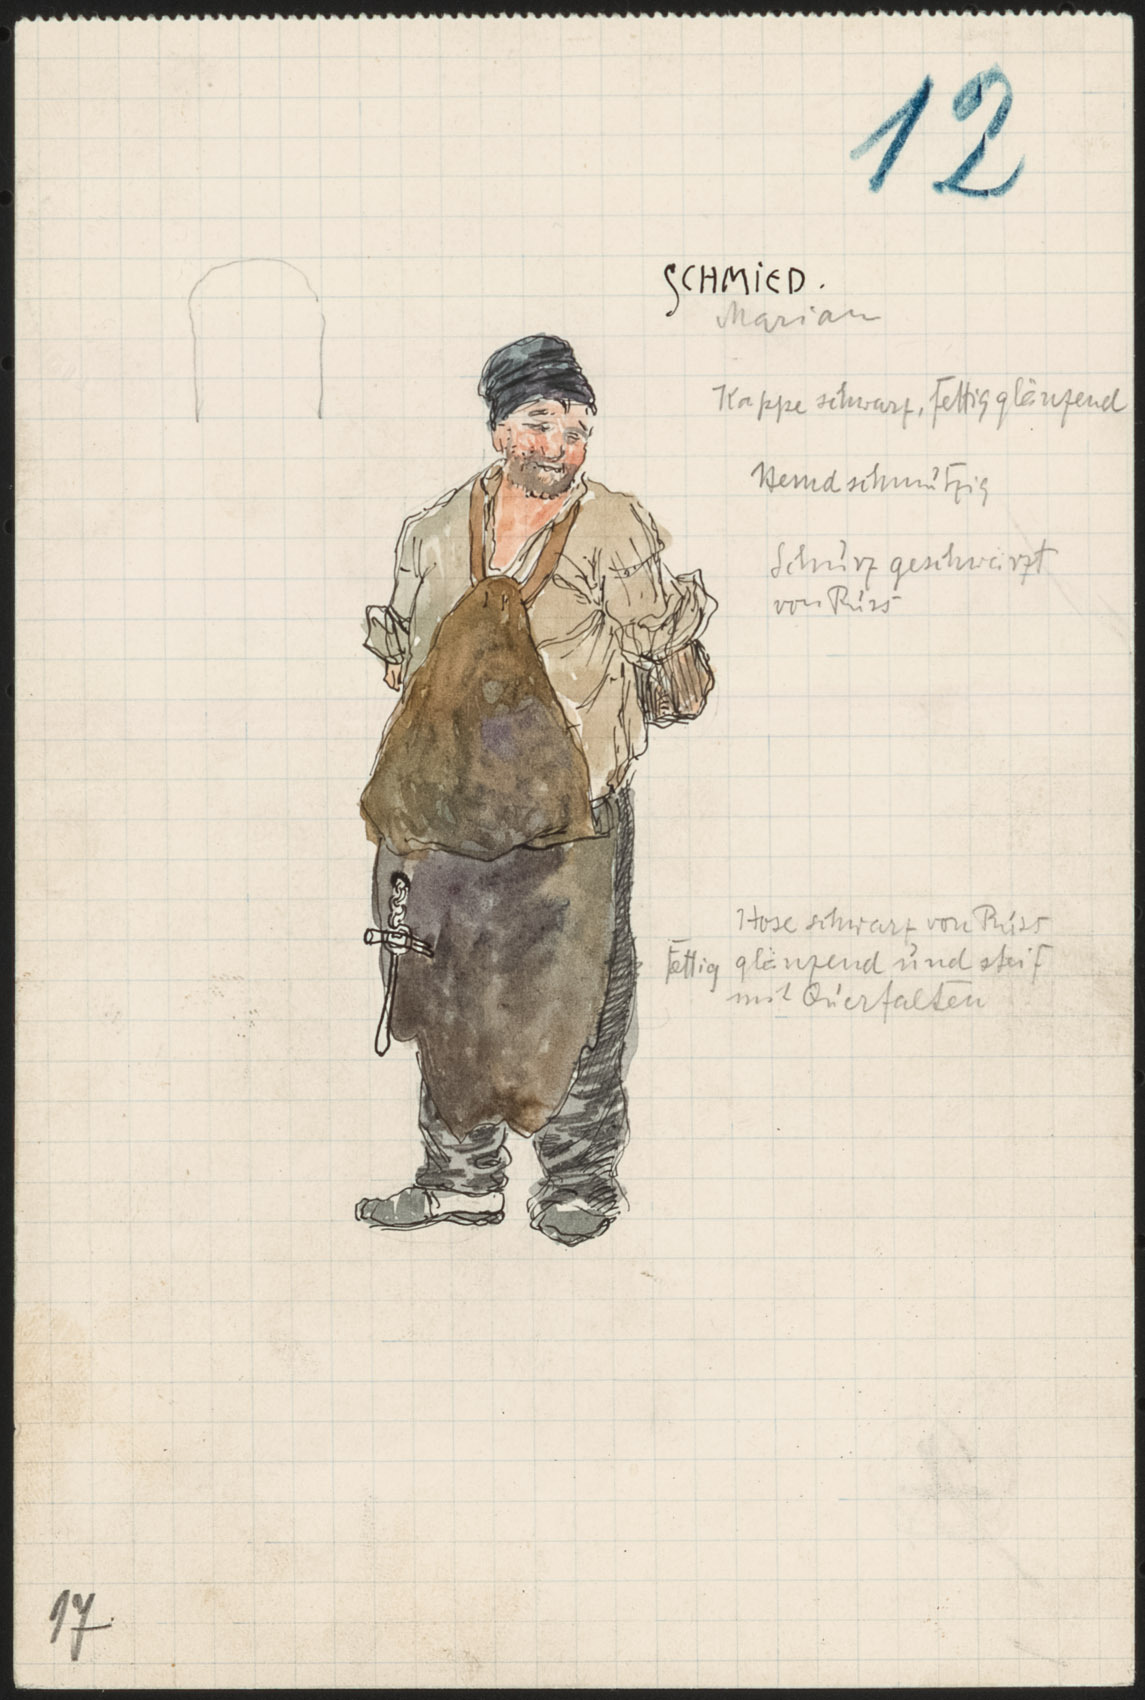 12
SCHMIED.
Marian
Kappe schwarz, fettig glänzend
Hemd schmützig
Schürz geschwärzt
von Rúss
Hose schwarz von Rúss
fettig glänzend únd steif
mit Qúerfalten
17.